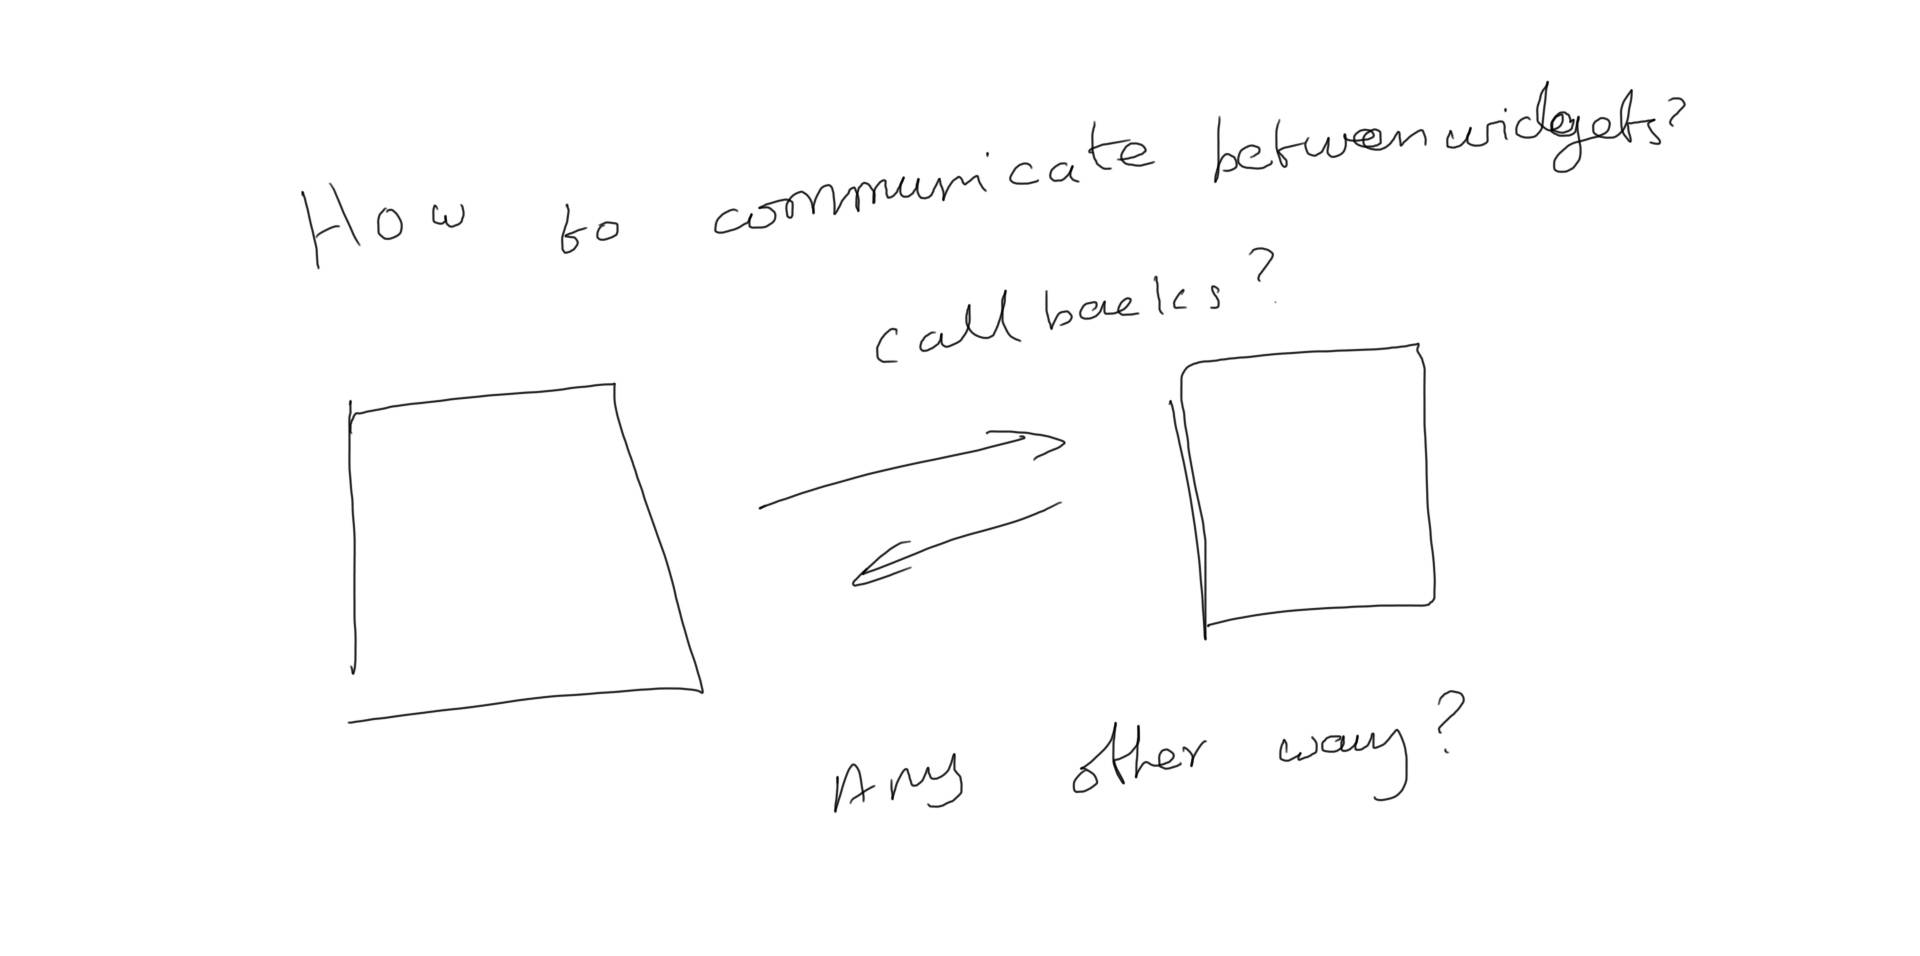 How to communicate between widgets?
callbacks?
Any other way?